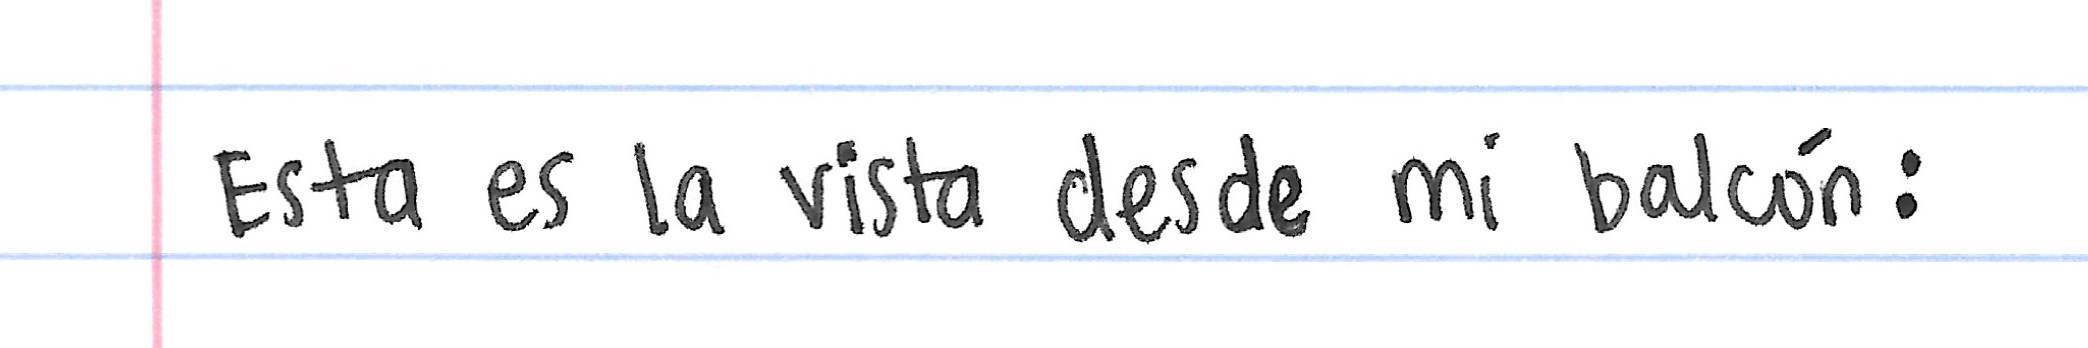 Esta es la vista desde mi balcón: